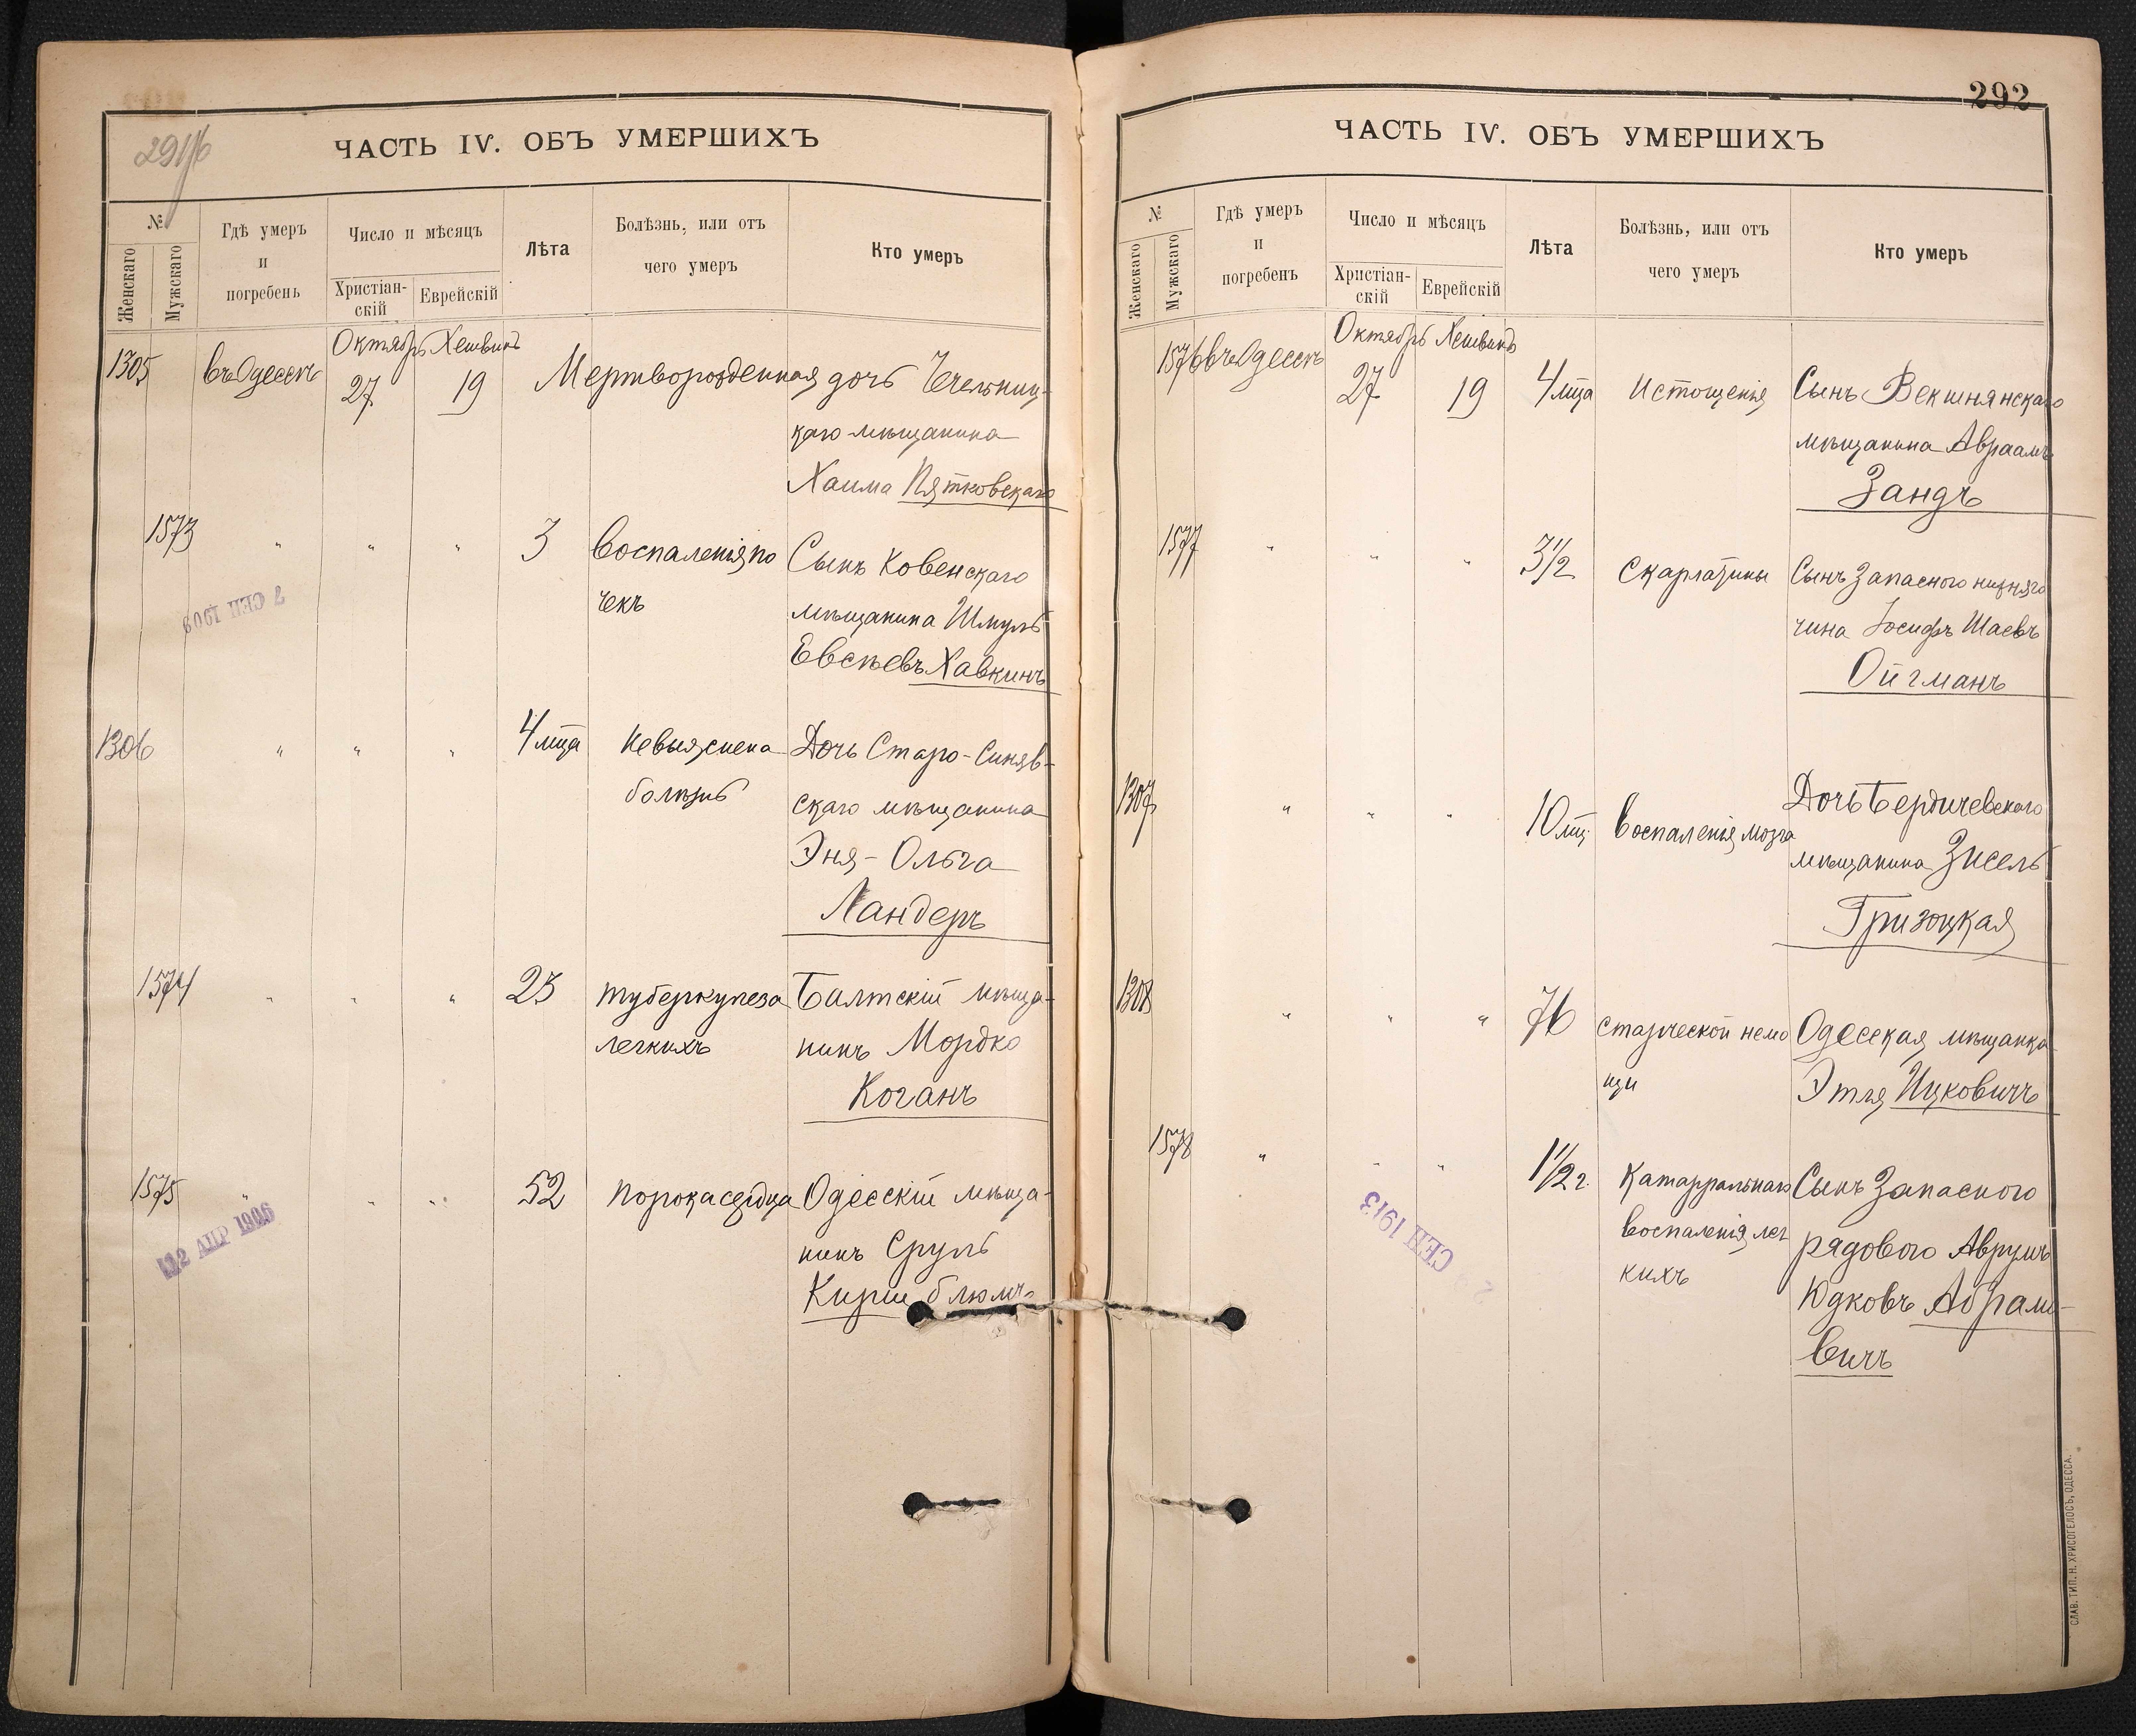 291/б
ЧАСТЬ IV. ОБЪ УМЕРШИХЪ
№
Женскаго
Мужскаго
Гдѣ умеръ
и
погребенъ
Число и мѣсяцъ
Христіан-
скій
Еврейскій
Лѣта
Болѣзнь, или отъ
чего умеръ
Кто умеръ
Октябрь Хешвинъ
1305 въ Одессѣ 27 19 Мертворожденная дочь Чечельниц-
каго мѣщанина
Хаима Пятковскаго
1573 " " " 3 воспаленія по Сынъ Ковенскаго
чекъ мѣщанина Шмуль
Евсѣевъ Хавкинъ
7 СЕН 1909
1306 " " " 4 мца Невыяснена Дочь Старо-Синяв-
болѣзнь скаго мѣщанина
Эня-Ольга
Ландеръ
1574 " " " 23 туберкулеза Балтскій мѣща-
легкихъ нинъ Мордко
Коганъ
1575 " " " 52 порока сердца Одесскій мѣща-
нинъ Сруль
Киршблюмъ
12 АПР 1906
292
ЧАСТЬ IV. ОБЪ УМЕРШИХЪ
№
Женскаго
Мужскаго
Гдѣ умеръ
и
погребенъ
Число и мѣсяцъ
Христіан-
скій
Еврейскій
Лѣта
Болѣзнь, или отъ
чего умеръ
Кто умеръ
Октябрь Хешвинъ
1576 въ Одессѣ 27 19 4 мца Истощенія Сынъ Векшнянскаго
мѣщанина Авраамъ
Зандъ
1577 " " " 3 1/2 Скарлатины Сынъ Запасного нижняго
чина Іосифъ Шаевъ
Ойгманъ
1307 " " " 10 мц. воспаленія мозга Дочь Бердичевскаго
мѣщанина Зисель
Гризоцкая
1308 " " " 76 старческой немо Одесская мѣщанка
щи Этля Ицковичъ
1578 " " " 1 1/2 г. Катарральнаго Сынъ Запасного
воспаленія лег рядового Аврумъ
кихъ Юдковъ Абрамо-
вичъ
СЕН 1913
СЛАВ. ТИП. Н. ХРИСОГЕЛОСЪ, ОДЕССА.